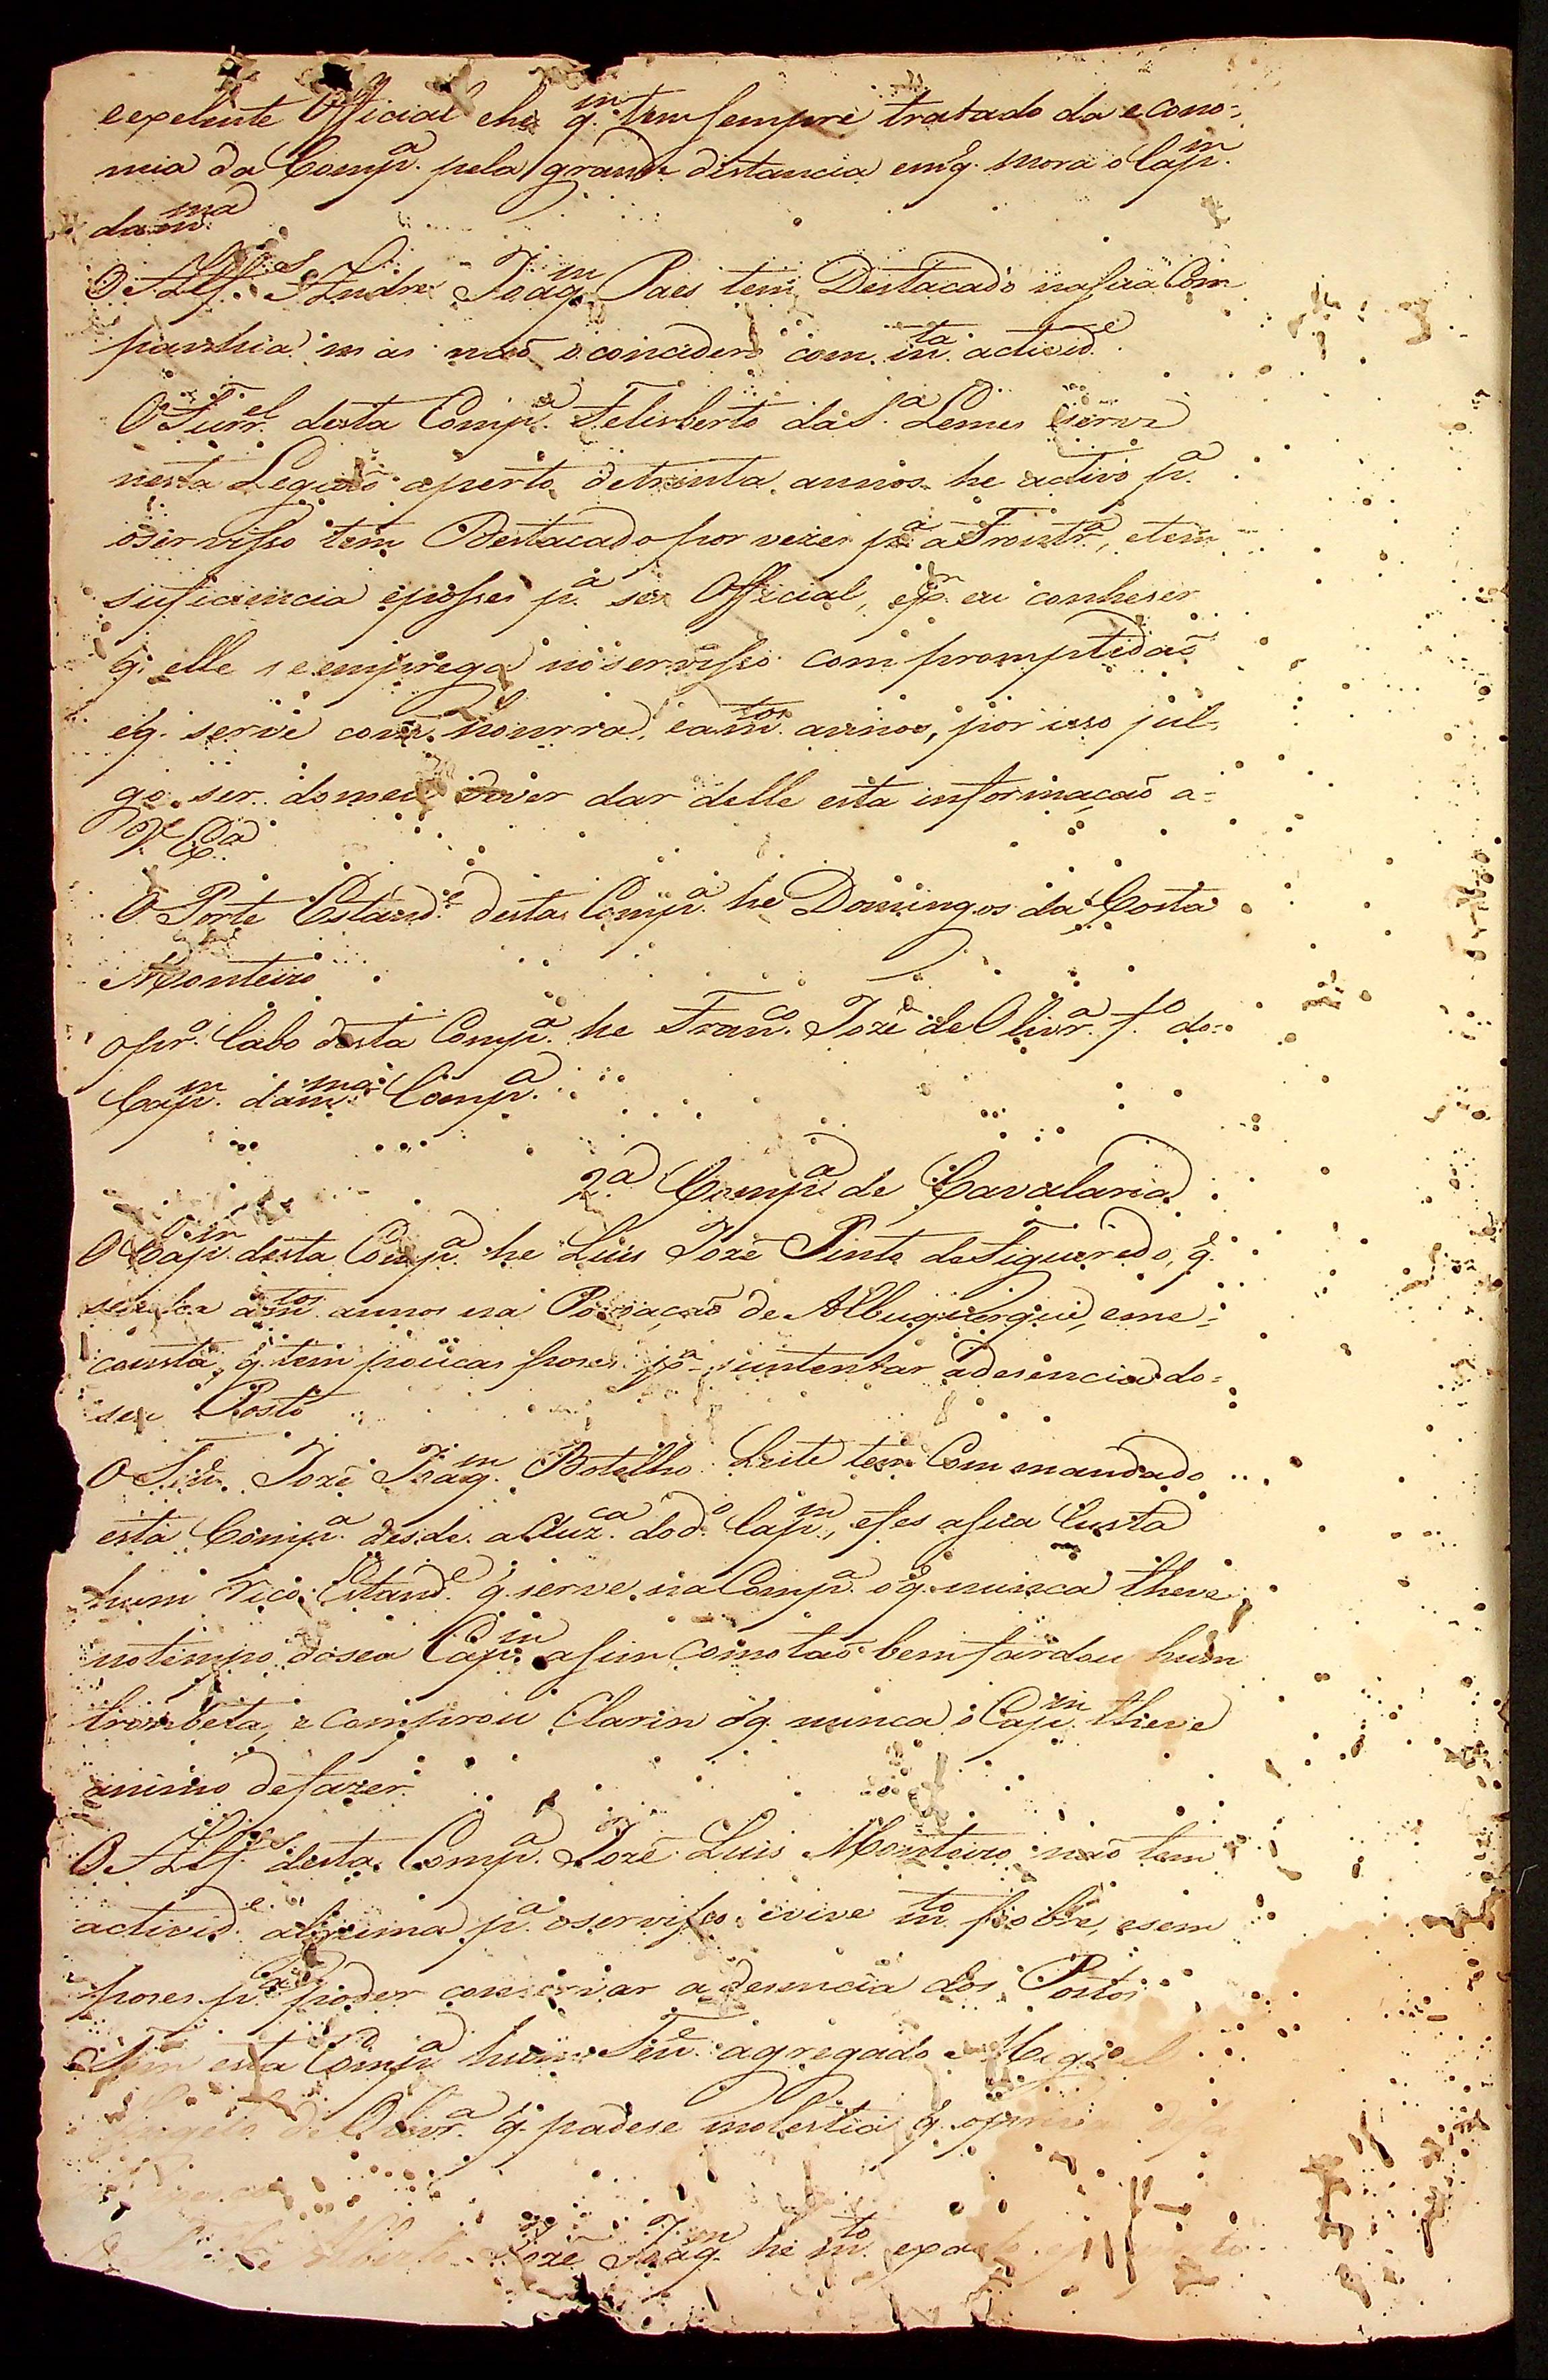 eexelente Official ehe q.m tem sempre tratado da econo-
mia da Comp.a pela grande distancia emq. mora o Cap.m
dam.ma
O Alf.es Andre Joaq.m Paes tem Destacado nasua Com
panhia mas naõ o conciders com m.ta activid.e
O Furr.el desta Comp.a Felisberto daS.a Lemes serve
nesta Legiaõ aperto detrinta annos he activo p.a
oservisso tem Destacado por vezes p.a aFrontr.a, etem
suficiencia eposses p.a ser Official, ep.r eu conheser
q. elle seemprega noservisso com promptidaõ
eq. serve com honrra, eam.tos annos, por isso jul-
go ser domeu dever dar delle esta informaçaõ a-
V Ex.a
O Porte Estand.e desta Comp.a he Domingos da Costa
Monteiro
Opr.o Cabo desta Comp.a he Fran.co Jozé deOlivr.a f.o do-
Cap.m dam.ma Comp.a
2.a Comp.a de Cavalaria
O Cap.m desta Comp.a he Luis Jozé Pinto deFigueredo, q.
se acha am.tos annos na Povoaçaõ de Albuquerque, eme-
consta, q. tem poucas poses p.a sustentar adesencia do-
seu Posto
O Ten.e Jozé Joaq.m Botelho Leite tem Commandado
esta Comp.a desde a Auz.ca dod.o Cap.m, efes asua Custa
hum rico Estand.e q. serve naComp.a oq. nunca theve
notempo doseu Cap.m asim comotaõ bem fardou hum
trombeta, e comprou Clarin oq. nunca o Cap.m theve
animo defazer
O Alf.es desta Comp.a Jozé Luis Monteiro naõ tem
activid.e alguma p.a oservisso evive m.to pobre, esem
poses p.a poder conservar adesencia dos Postos
Tem esta Comp.a hum Ten.e agregado Megiel
Angelo de Olivr.a q. padese molestia q. opriva
Jozé Joaq.m he m.to exacto